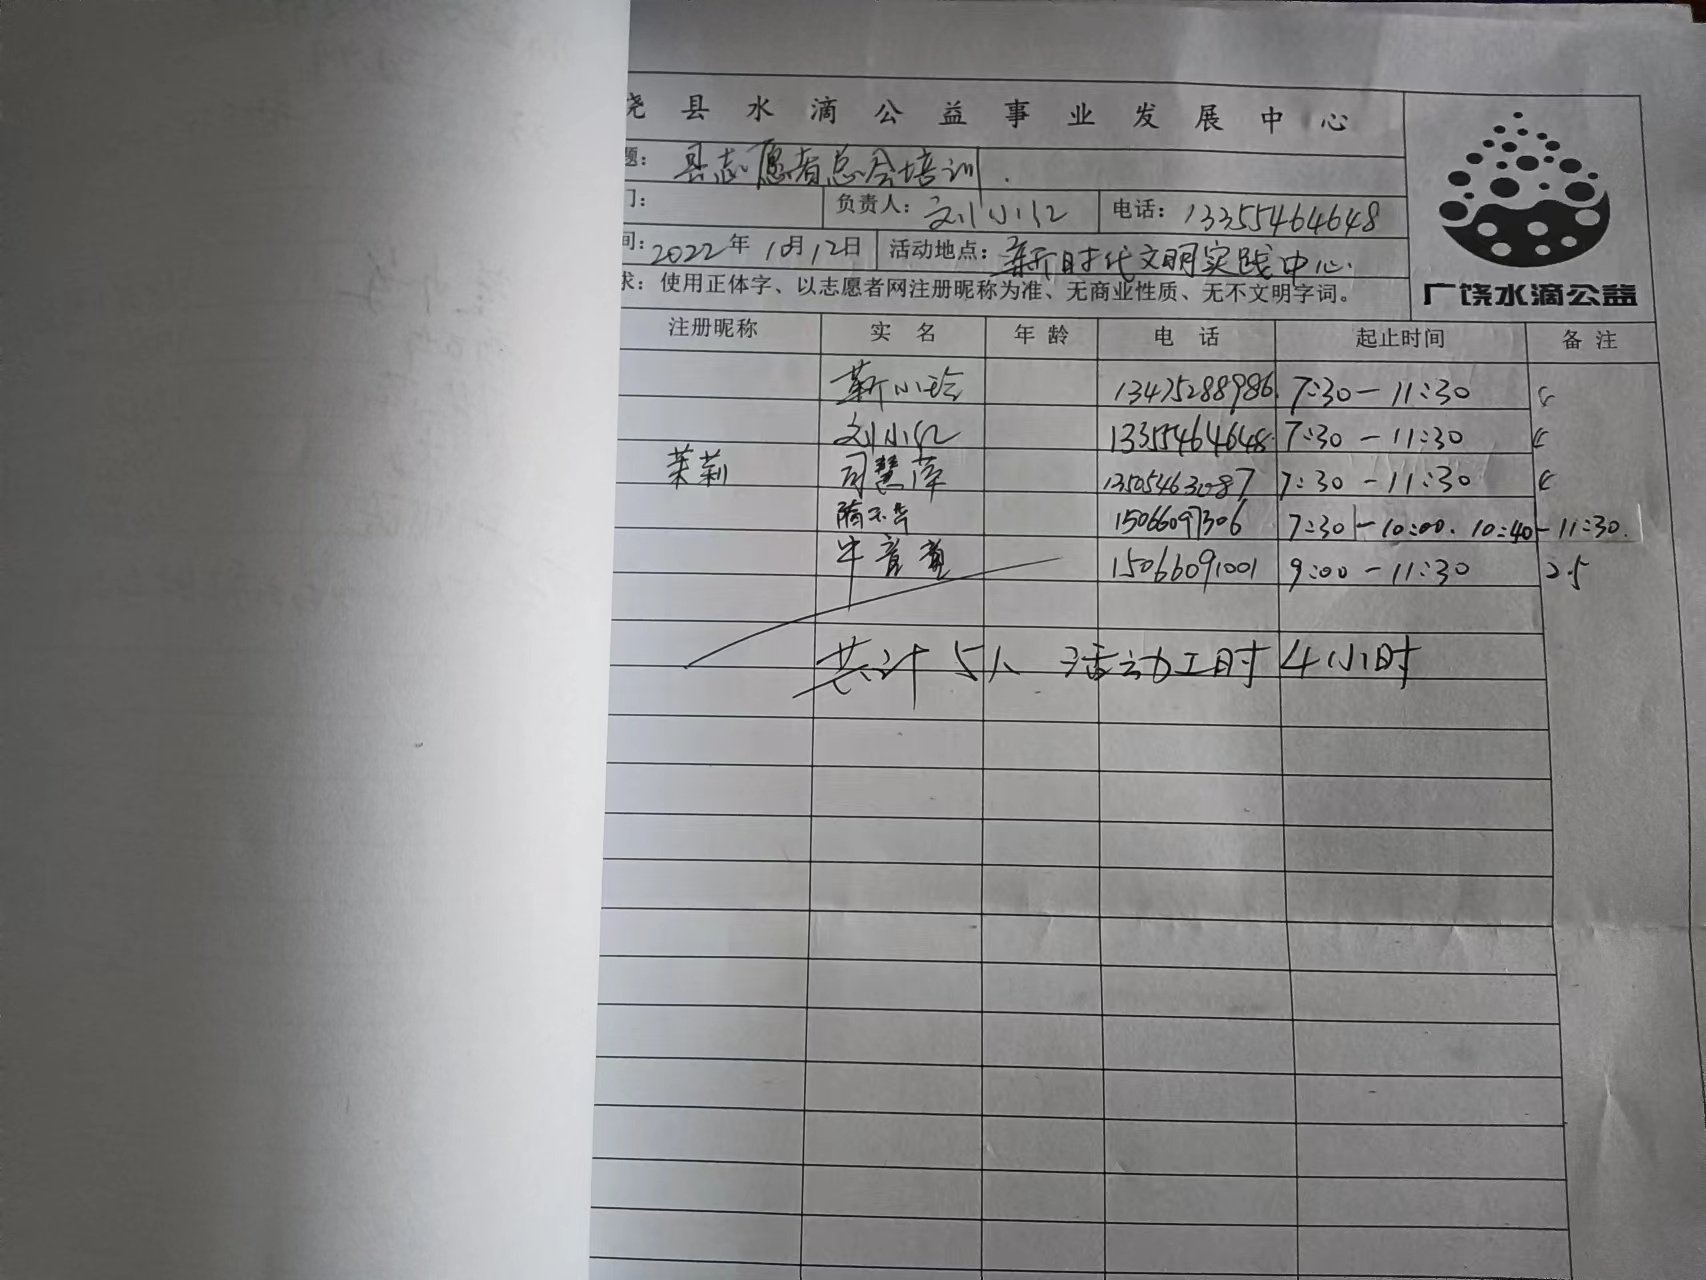 饶县水滴公益事业发展中心
题：县志愿者总会培训.
门： 负责人：刘小红 电话：13355464648
间：2022年10月12日 活动地点：新时代文明实践中心.
求：使用正体字、以志愿者网注册昵称为准、无商业性质、无不文明字词。
广饶水滴公益
注册昵称 实 名 年 龄 电 话 起止时间 备 注
靳小玲 13475288986 7:30-11:30 4
刘小红 13355464648 7:30-11:30 4
茉莉 司慧萍 13505463087 7:30-11:30 4
隋 15066097306 7:30-10:00. 10:40-11:30.
牛 15066091001 9:00-11:30 2.5
共计5人 活动工时4小时